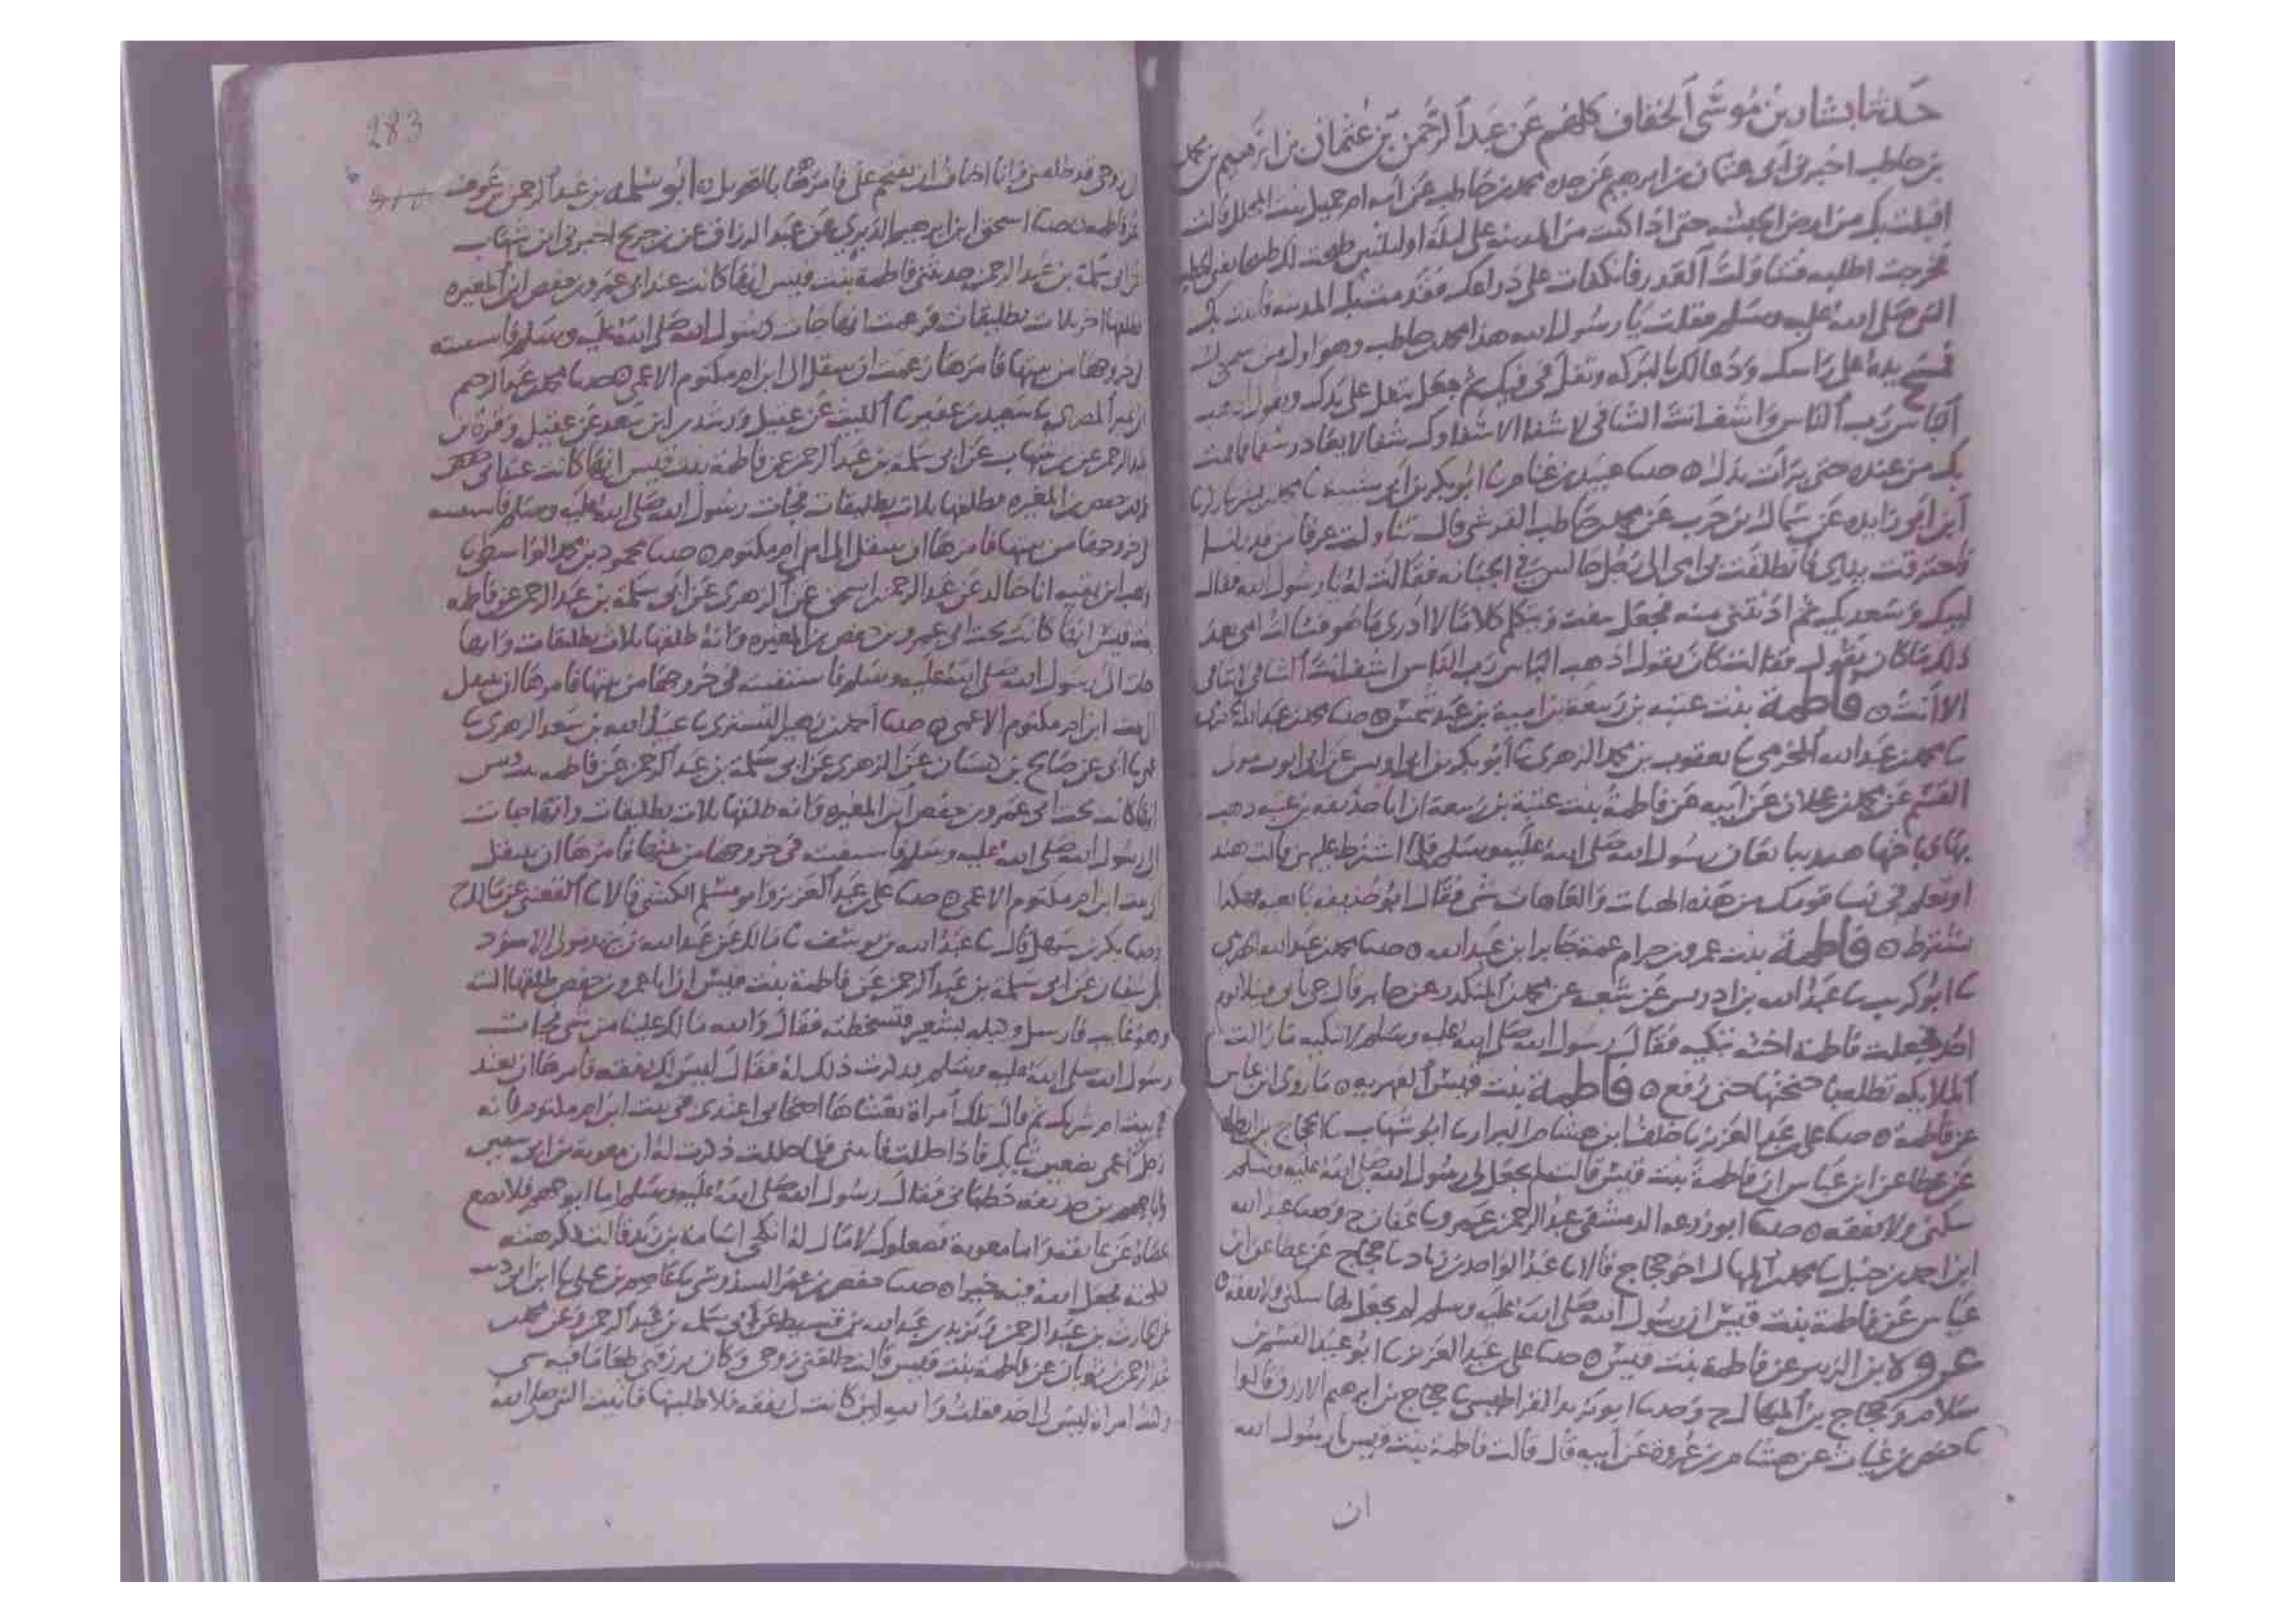 حدثنا بشار بن موسى الخفاف كلهم عن عبد الرحمن بن عثمان بن ابرهيم بن محمد
بن حاطب اخبرني ابي عثمان بن ابرهيم عن جده محمد بن حاطب عن امه ام جميل بنت المجلل قالت
اقبلت بك من ارض الحبشه حتى اذا كنت من المدينه على ليله او ليلتين طبخت لك طبخا ففني الحطب
فخرجت اطلبه فتناولت القدر فانكفات على ذراعك فقدمت بك المدينه فاتيت بك
النبي صلى الله عليه وسلم فقلت يا رسول الله هذا محمد بن حاطب وهو اول من سمي بك
فمسح يده على راسك ودعا لك بالبركه وتفل في فيك ثم جعل يتفل على يدك ويقول اذهب
الباس رب الناس واشف انت الشافي لا شفا الا شفاوك شفا لا يغادر سقما فاقمت
بك من عنده حتى برات يدك ه حدثنا عبيد بن غنام نا ابو بكر بن ابي شيبة نا محمد بن بشر نا زكريا
ابن ابي زايده عن سماك بن حرب عن محمد بن حاطب القرشي قال تناولت عرفا من قدر لنا
فاحترقت يداي فانطلقت بي امي الى رجل جالس في الجبانه فقالت له يا رسول الله فقال
لبيك وسعديك ثم ادنتني منه فجعل ينفث ويتكلم كلاما لا ادري ما هو فسالت امي بعد
ذلك ما كان يقول فقالت كان يقول اذهب الباس رب الناس اشف انت الشافي لا شافي
الا انت ه فاطمة بنت عتبه بن ربيعة بن امية بن عبد شمس ه حدثنا محمد بن عبد الله
نا محمد بن عبد الله المخرمي نا يعقوب بن محمد الزهري نا ابو بكر بن ابي اويس عن ابي ايوب مولى
القسم عن محمد بن عجلان عن ابيه عن فاطمة بنت عتبة بن ربيعة ان ابا حذيفه بن عتبه ذهب
بها وباختها هند يبايعان رسول الله صلى الله عليه وسلم فلما اشترط عليهن قالت هند
او تعلم في نسا قومك من هذه الهنات والعاهات شي فقال ابو حذيفه بايعيه فهكذا
يشترط ه فاطمة بنت عمرو بن حرام عمة جابر ابن عبد الله ه حدثنا محمد بن عبد الله الحضرمي
نا ابو كريب نا عبد الله بن ادريس عن شعبه عن محمد بن المنكدر عن جابر قال جي بابي قتيلا يوم
احد فجعلت فاطمة اخته تبكيه فقال رسول الله صلى الله عليه وسلم لا تبكيه ما زالت
الملايكه تظله باجنحتها حتى رفع ه فاطمة بنت قيس الفهريه ه ما روى ابن عباس
عن فاطمة ه حدثنا علي بن عبد العزيز نا خلف ابن هشام البزار نا ابو شهاب نا الحجاج بن ارطاه
عن عطا عن ابن عباس ان فاطمة بنت قيس قالت لم يجعل لي رسول الله صلى الله عليه وسلم
سكنى ولا نفقه ه حدثنا ابو زرعه الدمشقي عبد الرحمن بن عمرو نا عفان ح وحدثنا عبد الله
ابن احمد بن حنبل نا محمد بن المنهال اخو حجاج قالا نا عبد الواحد بن زياد نا حجاج عن عطا عن ابن
عباس عن فاطمة بنت قيس ان رسول الله صلى الله عليه وسلم لم يجعل لها سكنى ولا نفقه ه
عروة ابن الزبير عن فاطمة بنت قيس ه حدثنا علي بن عبد العزيز نا ابو عبيد القسم بن
سلام وحجاج بن المنهال ح وحدثنا ابو يزيد القراطيسي نا حجاج بن ابرهيم الازرق قالوا
نا حفص بن غياث عن هشام بن عروة عن ابيه قال قالت فاطمة بنت قيس يا رسول الله
ان
283
زوجي قد طلقني وانا اخاف ان يقتحم علي فامرها بالتحويل ه ابو سلمه بن عبد الرحمن بن عوف
عن فاطمه ه حدثنا اسحق ابن ابرهيم الدبري عن عبد الرزاق عن بن جريج اخبرني ابن شهاب
عن ابي سلمة بن عبد الرحمن حدثتني فاطمة بنت قيس انها كانت عند ابي عمرو بن حفص ابن المغيره
فطلقها اخر ثلاث تطليقات فزعمت انها جات رسول الله صلى الله عليه وسلم فاستفتته
في خروجها من بيتها فامرها زعمت ان تنتقل الى ابن ام مكتوم الاعمى ه حدثنا محمد بن عبد الرحيم
المصري نا سعيد بن عفير نا الليث عن عقيل ورشدين ابن سعد عن عقيل وقرة بن
عبد الرحمن عن بن شهاب عن ابي سلمة بن عبد الرحمن عن فاطمة بنت قيس انها كانت عند ابي حفص
المغيره فطلقها ثلاث تطليقات فجات رسول الله صلى الله عليه وسلم فاستفتته
في خروجها من بيتها فامرها ان تنتقل الى ابن ام مكتوم ه حدثنا محمود بن محمد الواسطي نا
وهب ابن بقيه انا خالد عن عبد الرحمن بن اسحق عن الزهري عن ابي سلمة بن عبد الرحمن عن فاطمه
بنت قيس انها كانت تحت ابي عمرو بن حفص بن المغيره وانه طلقها ثلاث تطليقات وانها
جات الى رسول الله صلى الله عليه وسلم فاستفتته في خروجها من بيتها فامرها ان تنتقل
الى بيت ابن ام مكتوم الاعمى ه حدثنا احمد بن زهير التستري نا عبيد الله بن سعد الزهري نا
عمي نا ابي عن صالح بن كيسان عن الزهري عن ابي سلمة بن عبد الرحمن عن فاطمه بنت قيس
انها كانت تحت ابي عمرو بن حفص ابن المغيره وانه طلقها ثلاث تطليقات وانها جات
الى رسول الله صلى الله عليه وسلم فاستفتته في خروجها من بيتها فامرها ان تنتقل
الى بيت ابن ام مكتوم الاعمى ه حدثنا علي بن عبد العزيز وابو مسلم الكشي قالا نا القعنبي عن مالك ح
وحدثنا بكر بن سهل قال نا عبد الله بن يوسف نا مالك عن عبد الله بن يزيد مولى الاسود
بن سفيان عن ابي سلمة بن عبد الرحمن عن فاطمة بنت قيس ان ابا عمرو بن حفص طلقها البته
وهو غايب فارسل وكيله بشعير فتسخطته فقال والله مالك علينا من شي فجات
رسول الله صلى الله عليه وسلم فذكرت ذلك له فقال ليس لك نفقه فامرها ان تعتد
في بيت ام شريك ثم قال تلك امراة يغشاها اصحابي اعتدي في بيت ابن ام مكتوم فانه
رجل اعمى تضعين ثيابك فاذا حللت فاذنيني فلما حللت ذكرت له ان معوية بن ابي سفين
وابا جهم بن حذيفه خطباني فقال رسول الله صلى الله عليه وسلم اما ابو جهم فلا يضع
عصاه عن عاتقه واما معوية فصعلوك لا مال له انكحي اسامة بن زيد قالت فكرهته
فنكحته فجعل الله فيه خيرا ه حدثنا حفص بن عمر السدوسي نا عاصم بن علي نا ابن ابي ذيب
عن الحارث بن عبد الرحمن ويزيد بن عبد الله بن قسيط عن ابي سلمه بن عبد الرحمن وعن محمد
بن عبد الرحمن بن ثوبان عن فاطمة بنت قيس قالت طلقني زوجي وكان يرزقني طعاما فيه شي
امراة ليس لي احد فقلت والله لين كانت لي نفقه فلاطلبنها فاتيت النبي صلى الله